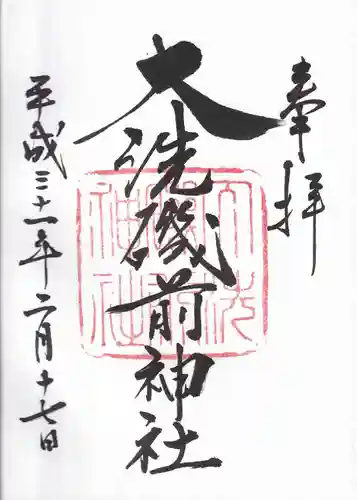 奉拝
大洗磯前神社
平成三十一年二月十七日